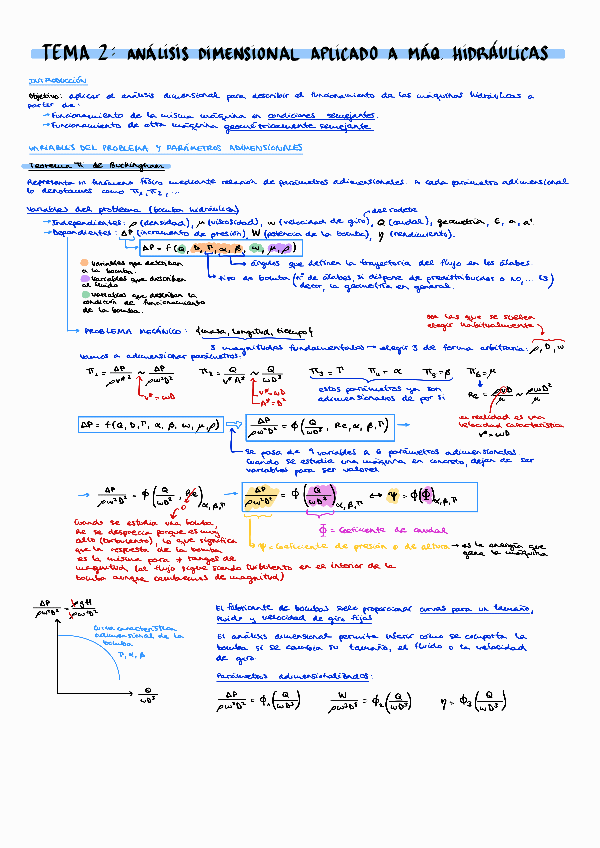 TEMA 2: ANÁLISIS DIMENSIONAL APLICADO A MÁQ. HIDRÁULICAS
INTRODUCCIÓN
Objetivo: aplicar el análisis dimensional para describir el funcionamiento de las máquinas hidráulicas a
partir de:
→ Funcionamiento de la misma máquina en condiciones semejantes.
→ Funcionamiento de otra máquina geométricamente semejante
VARIABLES DEL PROBLEMA Y PARÁMETROS ADIMENSIONALES
Teorema π de Buckingham
Representa un fenómeno físico mediante relación de parámetros adimensionales. A cada parámetro adimensional
lo denotamos como π₁, π₂, ...
Variables del problema (bomba hidráulica)
del rodete
→ Independientes: ρ (densidad), μ (viscosidad), w (velocidad de giro), Q (caudal), geometría,
→ Dependientes: ΔP (incremento de presión), W (potencia de la bomba), η (rendimiento).
ΔP = f(Q, D, Γ, α, β, w, μ, ρ)
variables que describen
a la bomba.
variables que describen
al fluido
variables que describen la
condición de funcionamiento
de la bomba.
ángulos que definen la trayectoria del flujo en los álabes
tipo de bomba (nº de álabes, si dispone de predistribuidor o no, ... es
decir, la geometría en general.
→ PROBLEMA MECÁNICO: {masa, longitud, tiempo}
son las que se suelen
elegir habitualmente
3 magnitudes fundamentales → elegir 3 de forma arbitraria: ρ, D, w
Vamos a adimensionar parámetros:
π₁ = ΔP/ρv*² ~ ΔP/ρw²D²
π₂ = Q/v*A* ~ Q/wD³
π₃ = Γ π₄ = α π₅ = β π₆ = μ
v* = wD
v* = wD
A* = D²
estos parámetros ya son
adimensionales de por si
Re = ρvD/μ ~ ρwD²/μ
en realidad es una
velocidad característica
v* = wD
ΔP = f(Q, D, Γ, α, β, w, μ, ρ) ⇒ ΔP/ρw²D² = ϕ(Q/wD³, Re, α, β, Γ)
se pasa de 9 variables a 6 parámetros adimensionales
Cuando se estudia una máquina en concreto, dejan de ser
variables para ser valores
→ ΔP/ρw²D² = ϕ(Q/wD³, Re)α,β,Γ → ΔP/ρw²D² = ϕ(Q/wD³)α,β,Γ ↔ ψ = ϕ(Φ)α,β,Γ
Φ = Coeficiente de caudal
ψ = Coeficiente de presión o de altura → es la energía que
gana la máquina
Cuando se estudia una bomba,
Re se desprecia porque es muy
alto (turbulento), lo que significa
que la respuesta de la bomba
es la misma para ≠ rangos de
magnitud (el flujo sigue siendo turbulento en el interior de la
bomba aunque cambiemos de magnitud)
ΔP/ρw²D² = ρgH/ρw²D²
Curva característica
adimensional de la
bomba
Γ, α, β
Q/wD³
El fabricante de bombas suele proporcionar curvas para un tamaño,
fluido y velocidad de giro fijos
El análisis dimensional permite inferir cómo se comporta la
bomba si se cambia su tamaño, el fluido o la velocidad
de giro.
Parámetros adimensionalizados:
ΔP/ρw²D² = ϕ₁(Q/wD³) W/ρw³D⁵ = ϕ₂(Q/wD³) η = ϕ₃(Q/wD³)